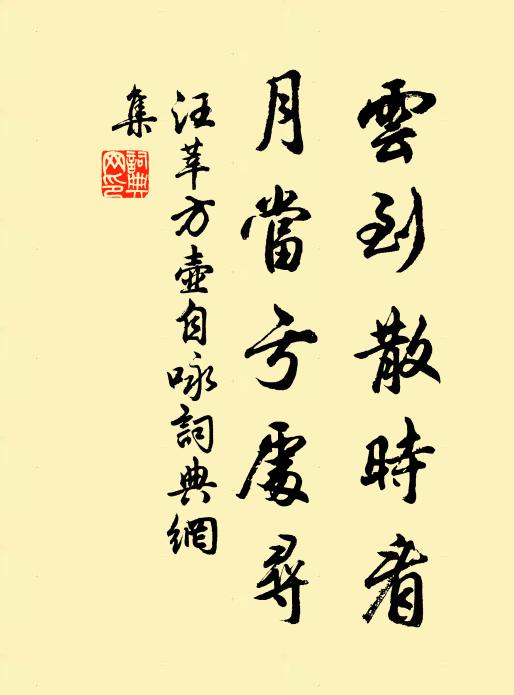 雲到散時看
月當亏處尋
汪莘方壺自咏詞典網
集
詞典
网印